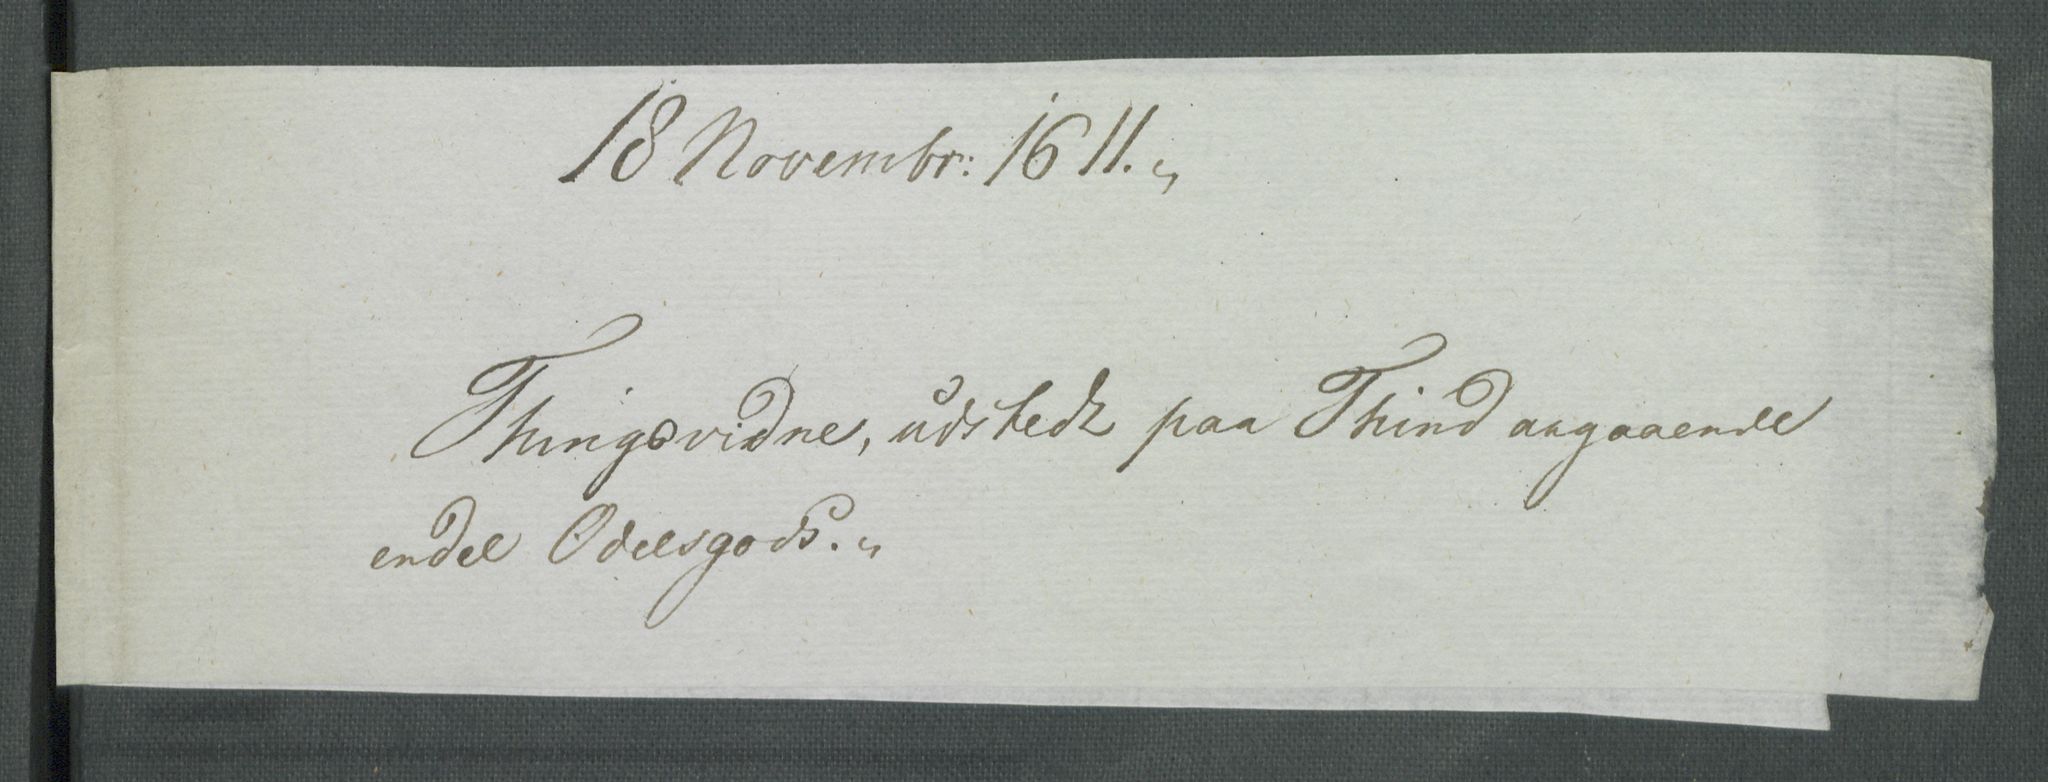 18 Novembr: 1611.
Thingsvidne, udstedt paa Thind angaaende
endel Odelsgods.